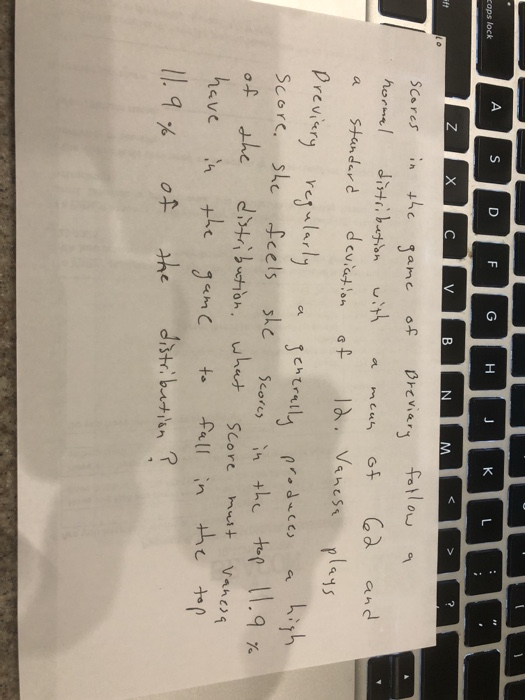 caps lock
A S D F G H J K L : ; "
Z X C V B N M < > ?
Scores in the game of Breviary follow a
normal distribution with a mean of 62 and
a standard deviation of 12. Vanesa plays
Breviary regularly a generally produces a high
score. She feels she scores in the top 11.9%
of the distribution. what score must Vanesa
have in the game to fall in the top
11.9% of the distribution?